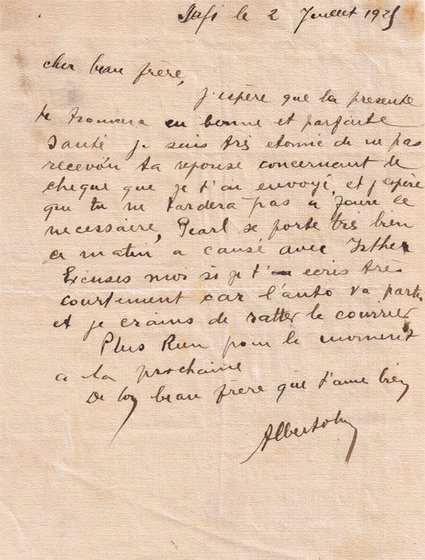 Safi le 2 Juillet 192
cher beau frère,
J'espère que la présente
te trouvera en bonne et parfaite
santé je suis très etonné de ne pas
recevoir ta reponse concernant le
cheque que je t'ai envoyé, et j'espère
que tu ne tardera pas a faire le
necessaire, Pearl se porte très bien
ce matin a causé avec Esther
Excuses moi si je t' ecris très
courtement car l'auto va partir
et je crains de ratter le courrier
Plus Rien pour le moment
a la prochaine
De ton beau frère que t'aime bien